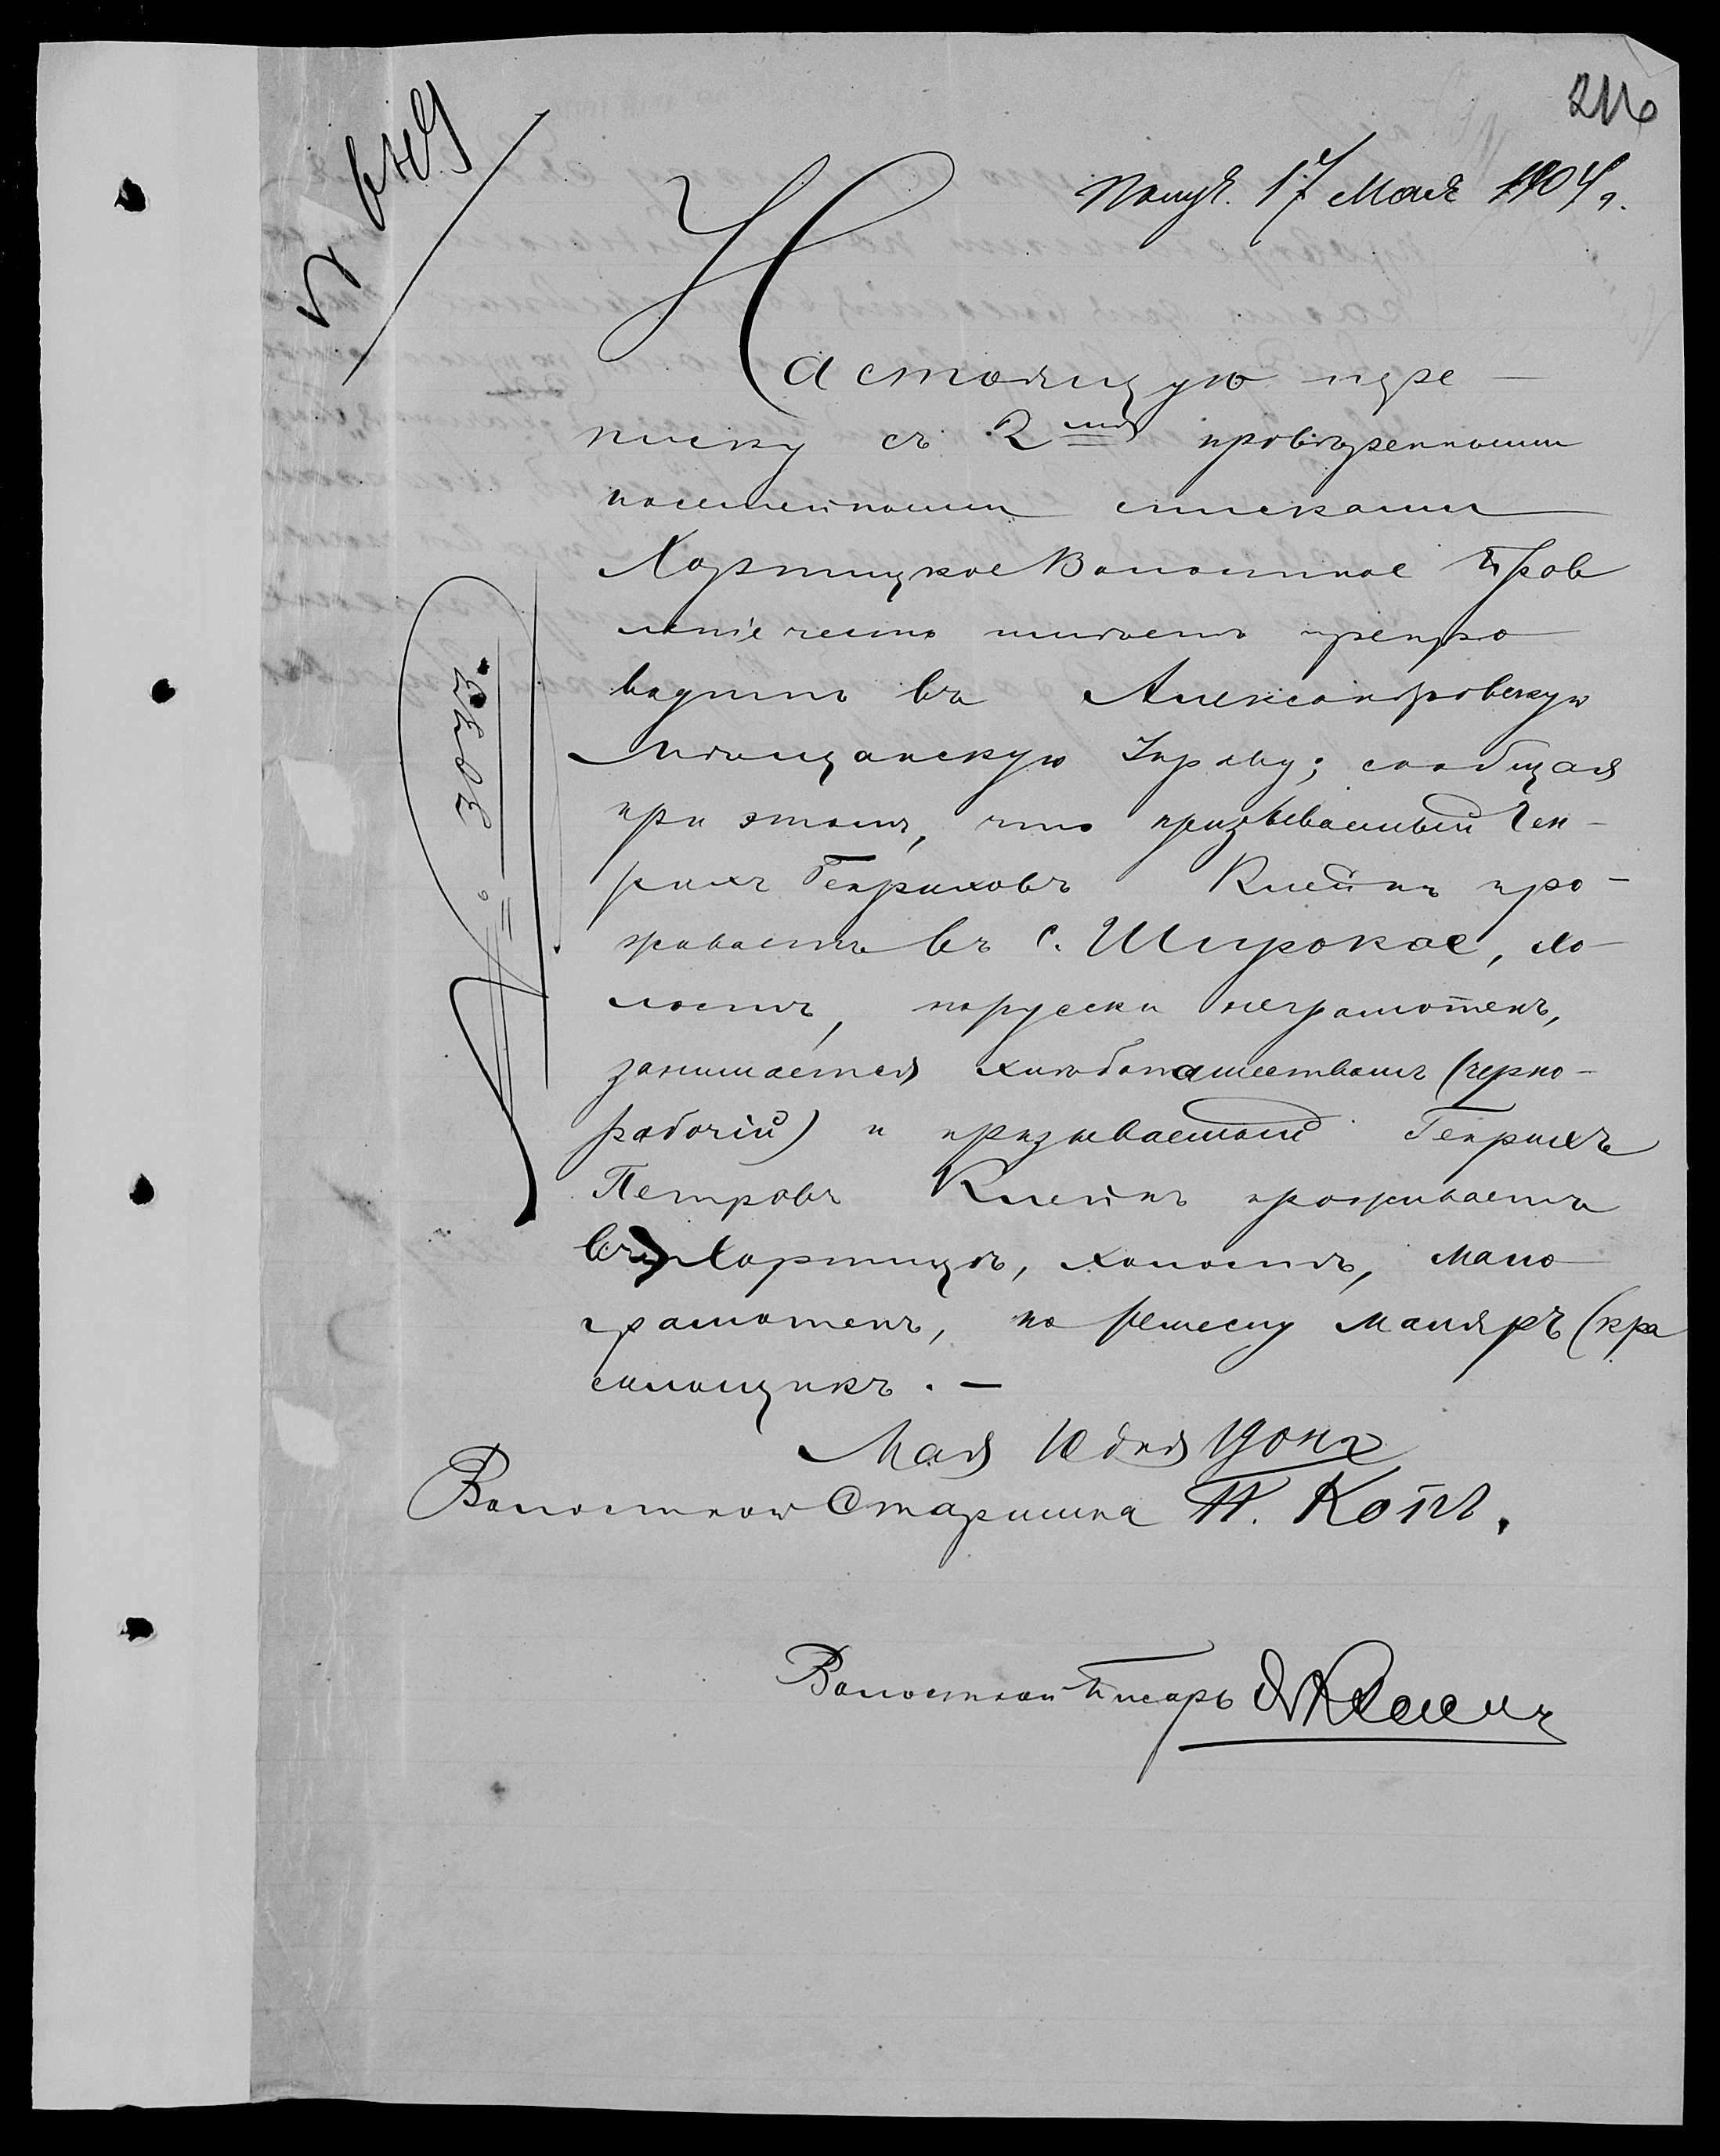 216
Получ. 17 Мая 1904 г.
Настоящую пере-
писку съ 2мя провѣренными
посемейными списками
Хортицкое Волостное Прав
леніе честь имѣетъ препро
водить въ Александровскую
Мѣщанскую Управу; сообщая
при этомъ, что призываемый Ген-
рихъ Генриховъ Клейнъ про-
живаетъ въ с. Широкое, хо-
лостъ, порусски неграмотенъ,
занимается хлѣбопашествомъ (черно-
рабочій) и призываемый Генрихъ
Петровъ Клейнъ проживаетъ
въ Хортицѣ, холостъ, мало
грамотенъ, по ремеслу маляръ (кра
сильщикъ. —
Мая 10 дня 1904 г
Волостной Старшина П. Коппъ.
Волостной Писарь
№ 3033.